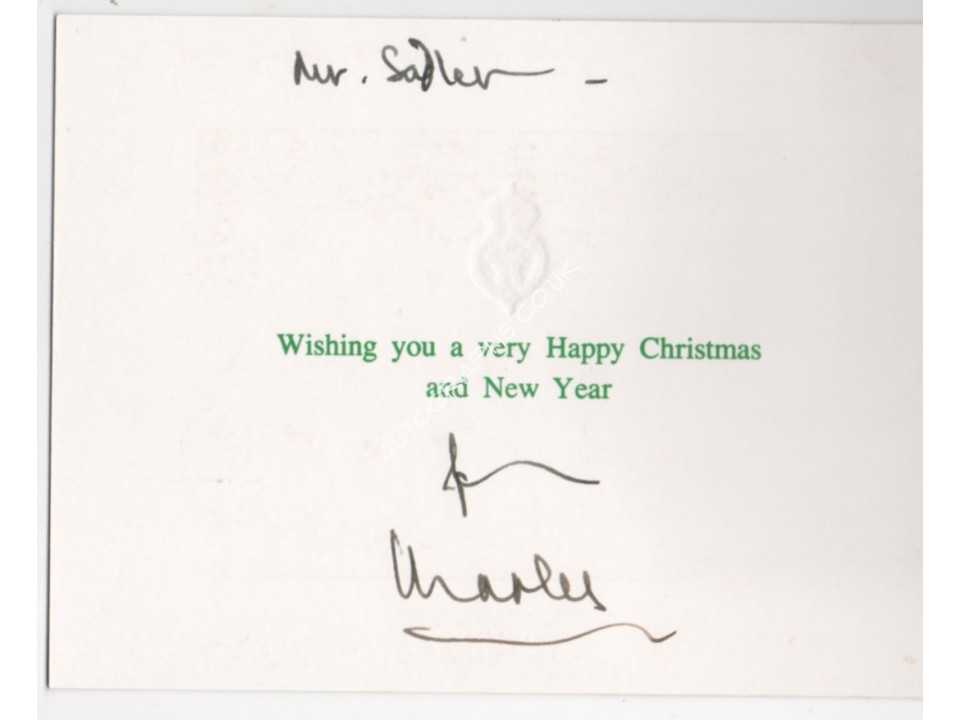 Mr. Sadler –
Wishing you a very Happy Christmas
and New Year
from
Charles
AUTOGRAPHS.CO.UK